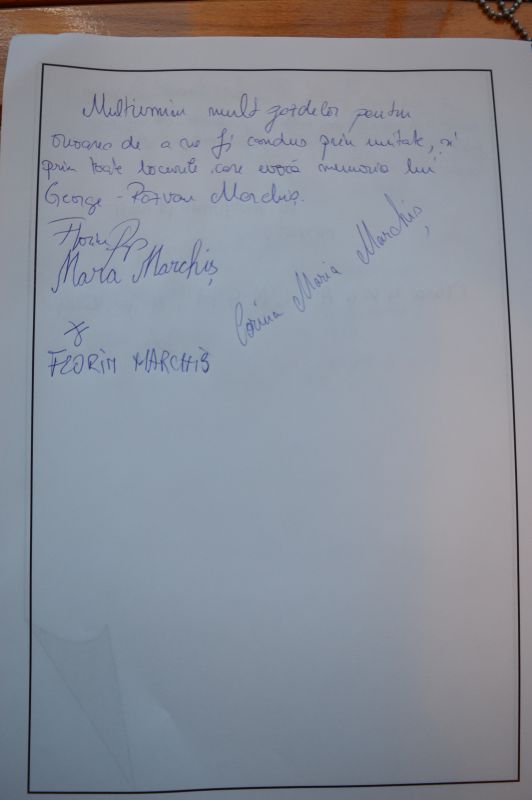 Multumim mult gazdelor pentru
onoarea de a ne fi condus prin unitate, si
prin toate locurile care evocă memoria lui
George - Razvan Marchiș.
Florin
Mara Marchiș
Corina Maria Marchiș
FLORIN MARCHIȘ